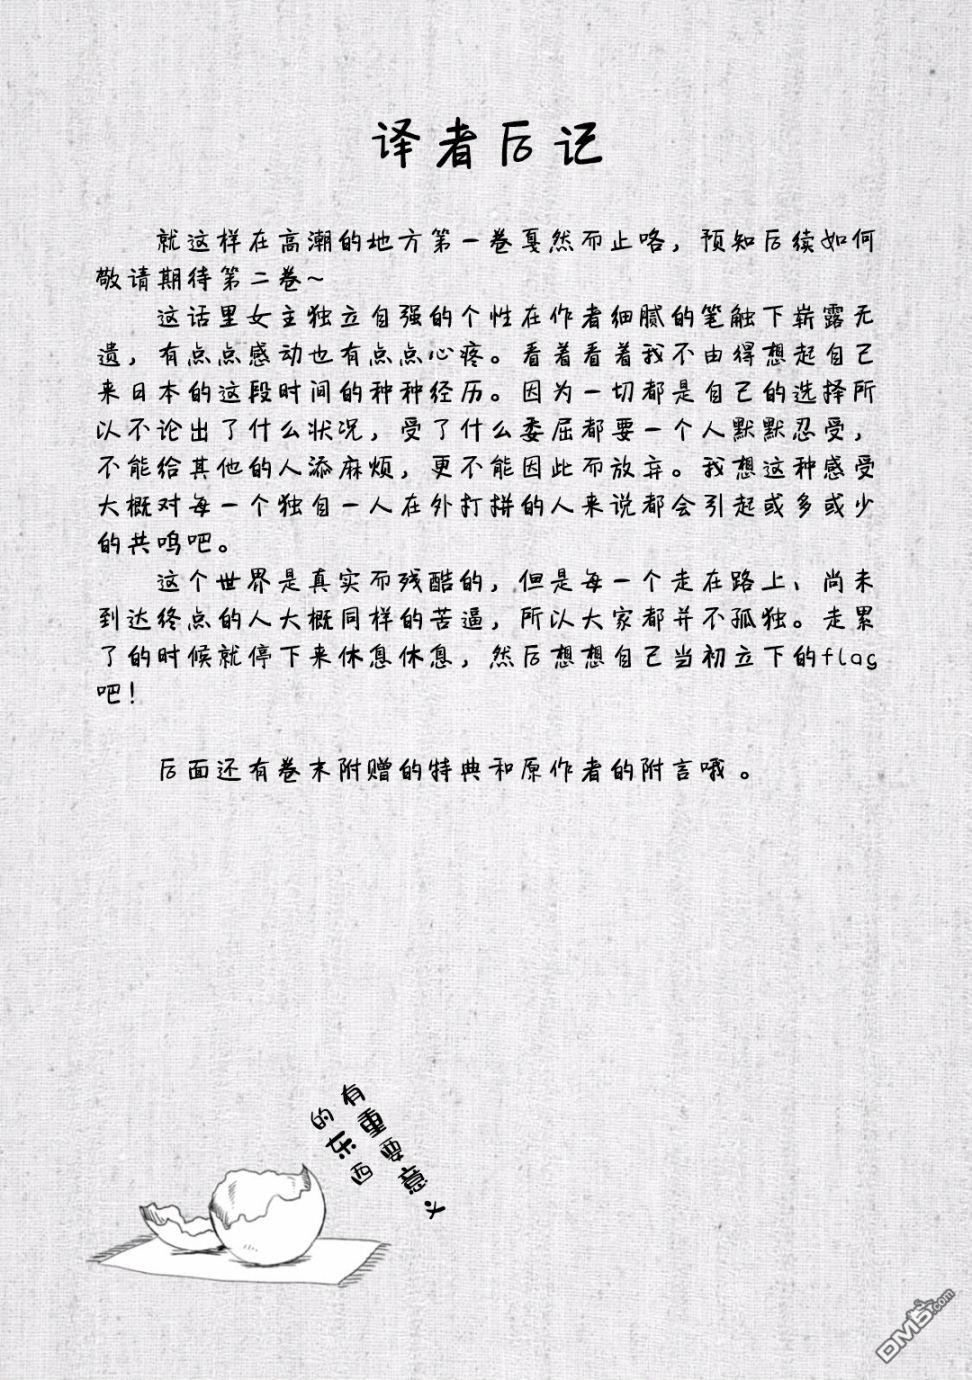 译者后记
就这样在高潮的地方第一卷戛然而止咯，预知后续如何
敬请期待第二卷~
这话里女主独立自强的个性在作者细腻的笔触下崭露无
遗，有点点感动也有点点心疼。看着看着我不由得想起自己
来日本的这段时间的种种经历。因为一切都是自己的选择所
以不论出了什么状况，受了什么委屈都要一个人默默忍受，
不能给其他的人添麻烦，更不能因此而放弃。我想这种感受
大概对每一个独自一人在外打拼的人来说都会引起或多或少
的共鸣吧。
这个世界是真实而残酷的，但是每一个走在路上、尚未
到达终点的人大概同样的苦逼，所以大家都并不孤独。走累
了的时候就停下来休息休息，然后想想自己当初立下的flag
吧！
后面还有卷末附赠的特典和原作者的附言哦。
有重要意义
的东西
DM5.com